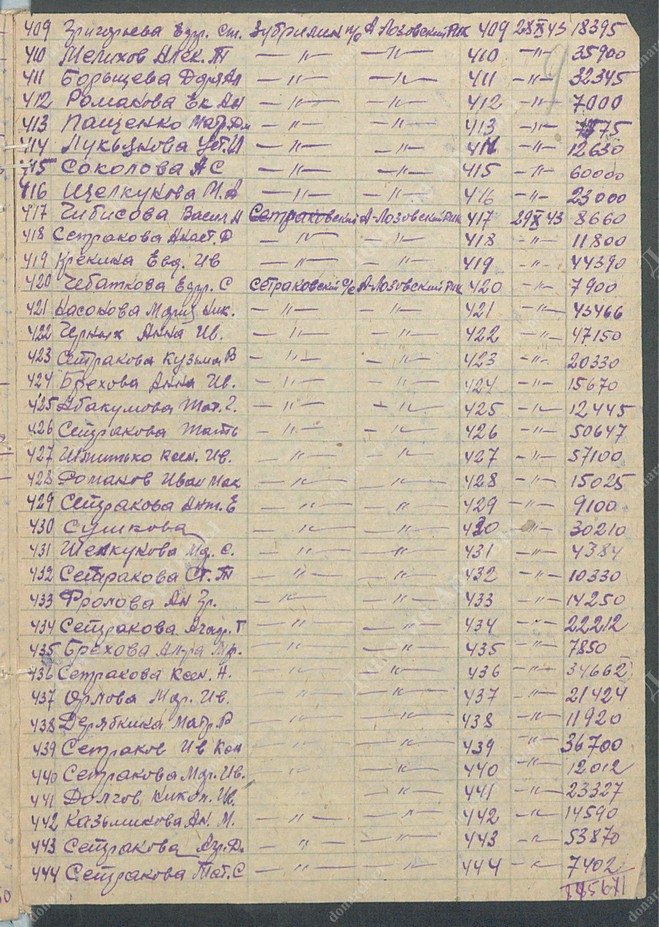 409 Григорьева Евдр. Ст. Зубрилин п/о А-Лозовский РИК 409 28 X 43 18395
410 Мелихов Алек. Т — " — — " — 410 — " — 35900
411 Борыщева Дарья — " — — " — 411 — " — 32345
412 Ромакова Ек. Ан — " — — " — 412 — " — 7000
413 Пащенко Матр. — " — — " — 413 — " —
414 Лукьянова Уст. И — " — — " — 414 — " — 12630
415 Соколова А С — " — — " — 415 — " — 60000
416 Щелкунова М. А — " — — " — 416 — " — 23000
417 Чибисова Васил. Сетраковский А-Лозовский РИК 417 29 X 43 8660
418 Сетракова Анаст. Ф — " — — " — 418 — " — 11800
419 Крекина Евд. Ив — " — — " — 419 — " — 44390
420 Чеботкова Евдр. С Сетраковский С/с А-Лозовский РИК 420 — " — 7900
421 Насонова Мария Ник. — " — — " — 421 — " — 45466
422 Черных Анна Ив. — " — — " — 422 — " — 47150
423 Сетракова Кузьма В — " — — " — 423 — " — 20330
424 Брехова Анна Ив. — " — — " — 424 — " — 15670
425 Абакумова Мат. Г. — " — — " — 425 — " — 12445
426 Сетракова Тать — " — — " — 426 — " — 50647
427 Ив. — " — — " — 427 — " — 57100
428 Романов Иван Мак — " — — " — 428 — " — 15025
429 Сетракова Ант. Е — " — — " — 429 — " — 9100
430 Сушкова — " — — " — 430 — " — 30210
431 Шелкунова Мр. С. — " — — " — 431 — " — 4384
432 Сетракова Ст. Т — " — — " — 432 — " — 10330
433 Фролова Ан Гр. — " — — " — 433 — " — 14250
434 Сетракова Агафр. Т — " — — " — 434 — " — 22212
435 Брехова — " — — " — 435 — " — 7850
436 Сетракова Ксен. Н. — " — — " — 436 — " — 34662
437 Орлова Мар. Ив. — " — — " — 437 — " — 21424
438 Дерябкина Матр. — " — — " — 438 — " — 11920
439 Сетраков Ив Кон — " — — " — 439 — " — 36700
440 Сетракова Мар. Ив. — " — — " — 440 — " — 12012
441 Долгов Никол. Ив. — " — 441 — " — 23327
442 Казьмикова Ан. М. — " — — " — 442 — " — 14590
443 Сетракова — " — — " — 443 — " — 53870
444 Сетракова Тат. С — " — — " — 444 — " — 7402